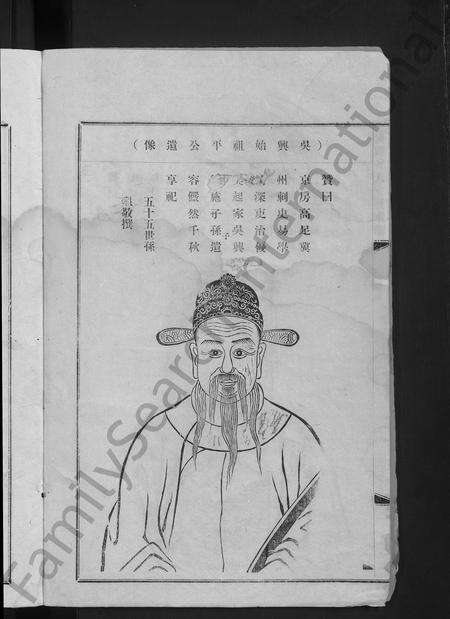 (吳興始祖平公遺像)
贊曰
京房高足冀
州刺史易學
深吏治優
起家吳興
施子孫遺
容儼然千秋
享祀
五十五世孫
敬撰
FamilySearch International